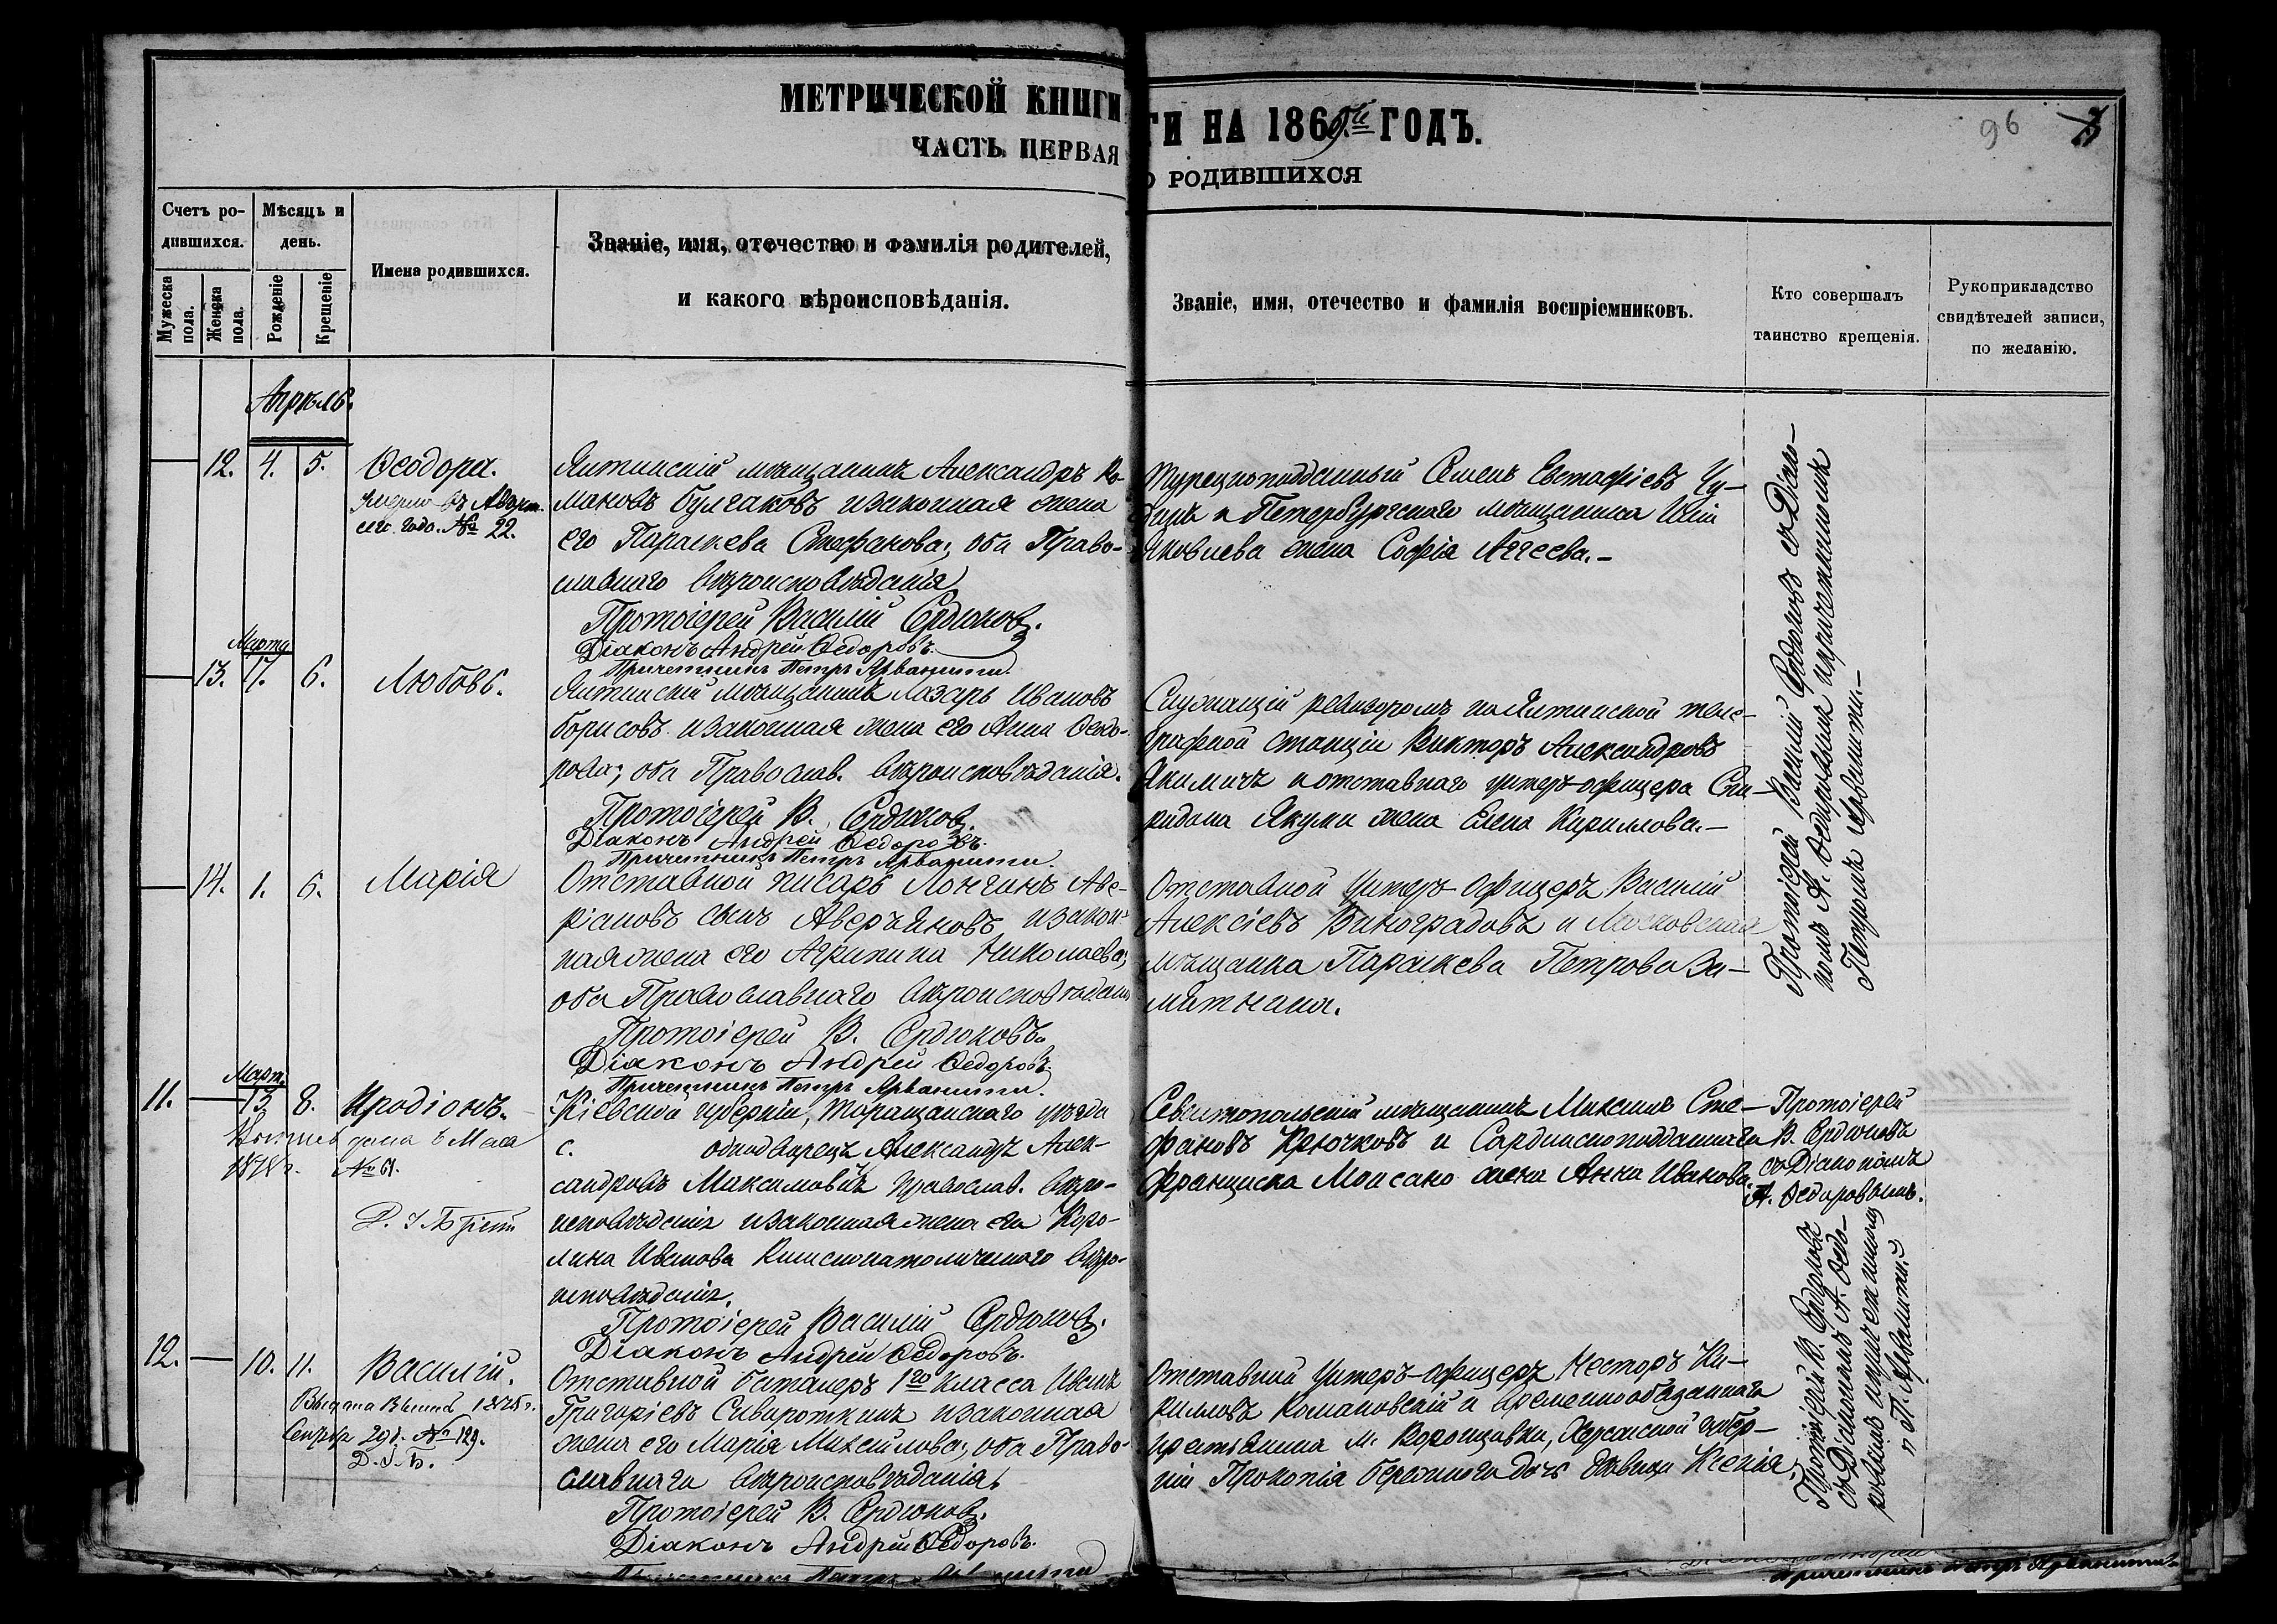 МЕТРИЧЕСКОЙ КНИГИ НА 1869й ГОДЪ.
ЧАСТЬ ПЕРВАЯ О РОДИВШИХСЯ
96
Счетъ родившихся.
Мужеска пола.
Женска пола.
Мѣсяць и день.
Рожденіе
Крещеніе
Имена родившихся.
Званіе, имя, отечество и фамилія родителей,
и какого вѣроисповѣданія.
Званіе, имя, отечество и фамилія воспріемниковъ.
Кто совершалъ
таинство крещенія.
Рукоприкладство
свидѣтелей записи,
по желанію.
Апрѣль.
12. 4. 5. Ѳеодора.
сего года. № 22.
Ялтинскій мѣщанинъ Александръ Ро-
мановъ Булгаковъ и законная жена
его Параскева Стефанова, оба Право-
славнаго вѣроисповѣданія
Протоіерей Василій Сердюковъ.
Діаконъ Андрей Ѳедоровъ.
Причетникъ Петръ Арванити.
Турецкоподданный Семенъ Евстафіевъ
и Петербургскаго мѣщанина
Яковлева жена Софія Аггеева.-
Протоіерей Василій Сердюковъ съ Діако-
номъ А. Ѳедоровымъ и причетникомъ
Петромъ Арванити.-
Марта
13. 17. 6. Любовь.
Ялтинскій мѣщанинъ Лазарь Ивановъ
Борисовъ и законная жена его Анна Ѳеодо-
рова; оба Православ. вѣроисповѣданія.
Протоіерей В. Сердюковъ.
Діаконъ Андрей Ѳедоровъ.
Причетникъ Петръ Арванити.
Служащій ревизоромъ на Ялтинской теле-
графной станціи Викторъ Александровъ
Якимичъ и отставнаго унтеръ-офицера Спи-
ридона Якуми жена Елена Кириллова.-
14. 1. 6. Марія
Отставной писарь Лонгинъ Аве-
ріановъ сынъ Аверьяновъ и закон-
ная жена его Агрипина Николаева;
оба Православнаго вѣроисповѣданія
Протоіерей В. Сердюковъ
Діаконъ Андрей Ѳедоровъ.
Причетникъ Петръ Арванити.
Отставной Унтеръ-офицеръ Василій
Алексіевъ Виноградовъ и Московская
мѣщанка Параскева Петрова
Март.
11. 13 8. Иродіонъ.
1878 г. № 61.
Кіевской губерніи, Таращанскаго уѣзда
с. однодворецъ Александръ Алек-
сандровъ Максимовичъ православ. вѣро-
исповѣданія и законная жена его Каро-
лина Иванова Римскокатолическаго вѣро-
исповѣданія.
Протоіерей Василій Сердюковъ.
Діаконъ Андрей Ѳедоровъ.
Севастопольскій мѣщанинъ Максимъ Сте-
фановъ Крючковъ и Сардинскоподданнаго
Франциска Моисано жена Анна Иванова.
Протоіерей
В. Сердюковъ
съ Діакономъ
А. Ѳедоровымъ.
12. 10. 11. Василій.
№ 129.
Отставной баталеръ 1го класса Иванъ
Григоріевъ Сивороткинъ и законная
жена его Марія Михайлова, оба Право-
славнаго вѣроисповѣданія,
Протоіерей В. Сердюковъ.
Діаконъ Андрей Ѳедоровъ.
Отставной Унтеръ-офицеръ Несторъ Ки-
рилловъ Романовскій и временнообязаннаго
крестьянина м. Воронцовки, Херсонской губер-
ніи Прокопія дочь дѣвица Ксенія.
Протоіерей В. Сердюковъ
съ Діакономъ А. Ѳедо-
ровымъ и причетникомъ
П. Арванити.
Причетникъ Петръ Арванити